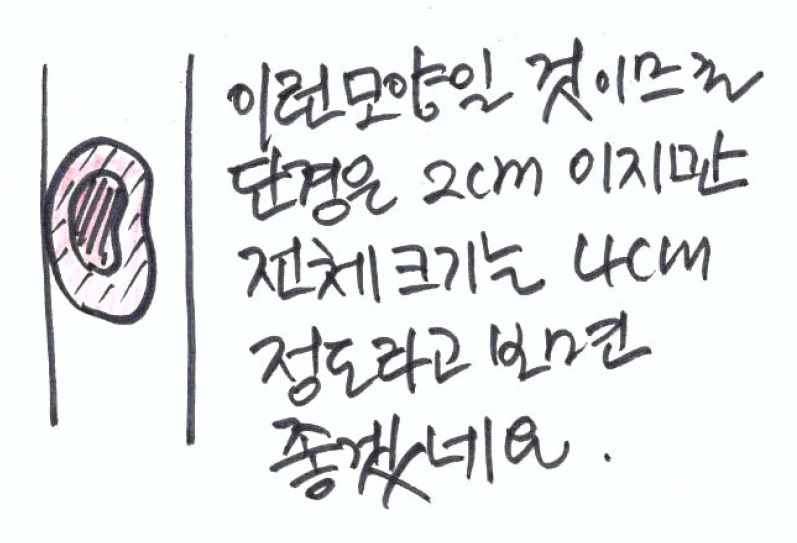 이런모양일 것이므로
단경은 2cm 이지만
전체크기는 4cm
정도라고 보면
좋겠네요.